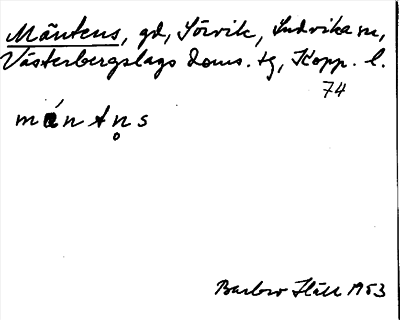 Mäntens, gd, Sörvik, Ludvika sn,
Västerbergslags doms. tg, Kopp. l.
74
mäntn̥s
Barbro Häll 1953